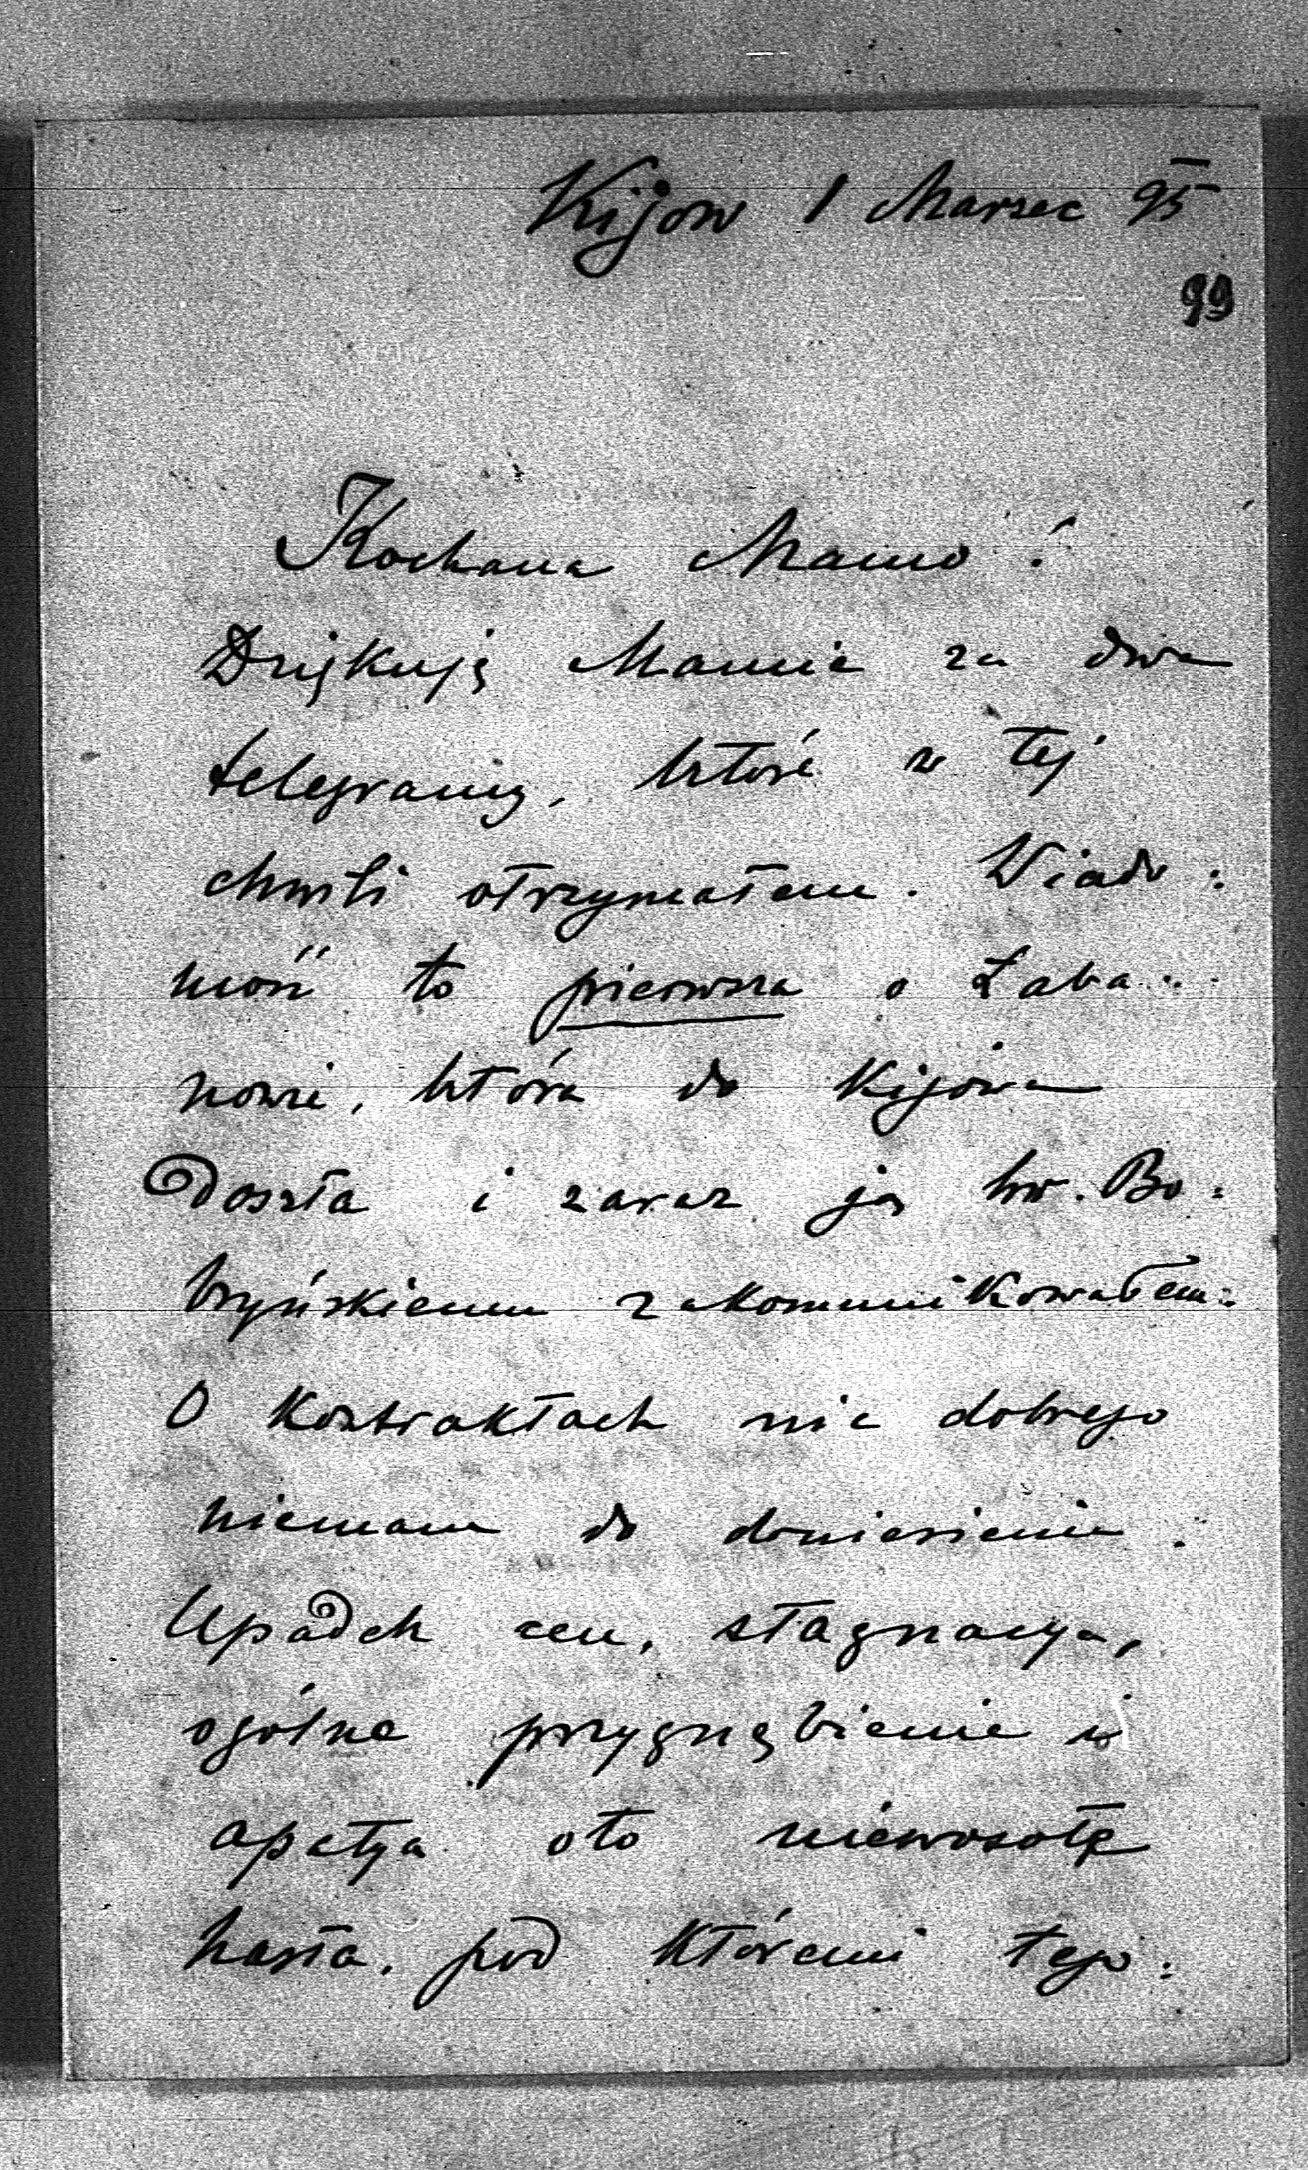 Kijow 1 Marzec 95
99
Kochana Mamo!
Dziękuję Mamie za dwa
telegramy, które w tej
chwili otrzymałem. Wiado:
mość to pierwsza o Łaba:
nowie, która do Kijowa
doszła i zaraz ją hr. Bo:
bryńskiemu zakomunikowałem.
O kontraktach nic dobrego
niemam do doniesienia.
Upadek cen, stagnacya,
ogólne przygnębienie i
apatya oto niewesołe
hasła, pod któremi tego: